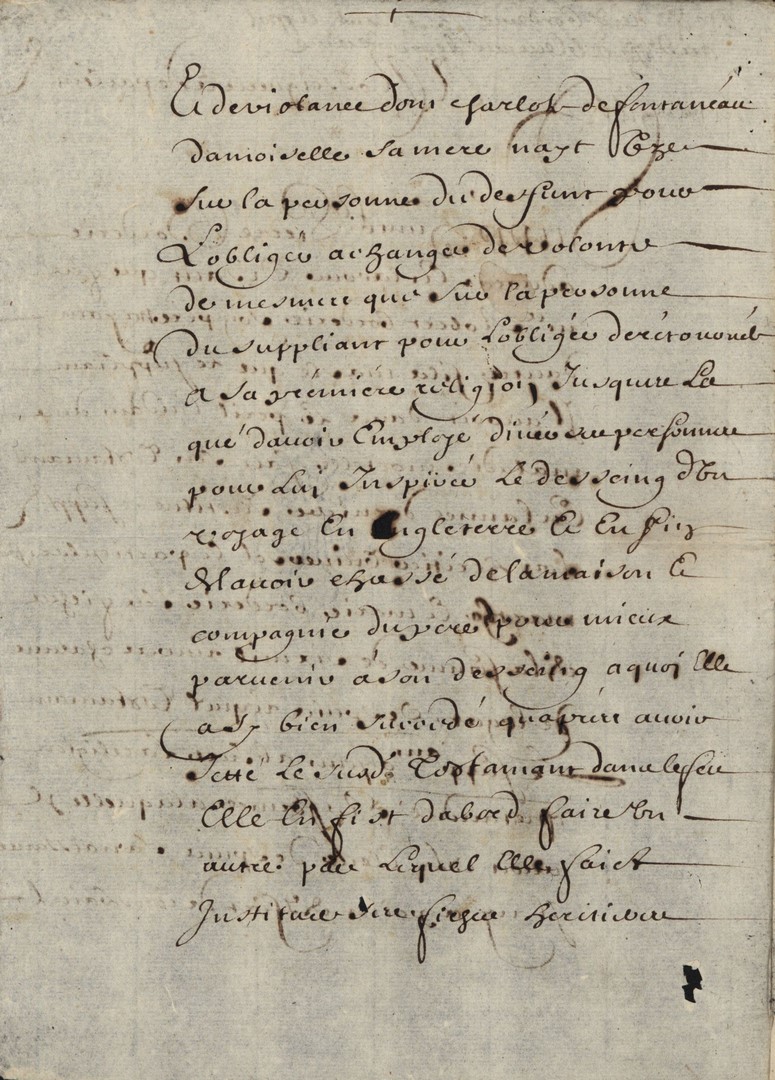 Et de violance dont Charlote de fontaneau
damoiselle sa mere nayt Uze
sur la personne du deffunt pour
L'obliger a changer de volonte
de mesmes que sur la personne
du suppliant pour L'obliger de retourner
a sa premiere religion Jusques La
que davoir Employé diverses personnes
pour Luy Inspirer Le desseing d'Un
voyage En Angleterre Et En fin
de lavoir chassé de la maison Et
compagnie du pere pour mieux
parvenir a son desseing a quoi Elle
a sy bien succedé qu'apres avoir
Jetté Le susd. Testament dans le feu
Elle En fist dabord faire Un
autre par Lequel Elle faict
Instituer ses filhes heritieres